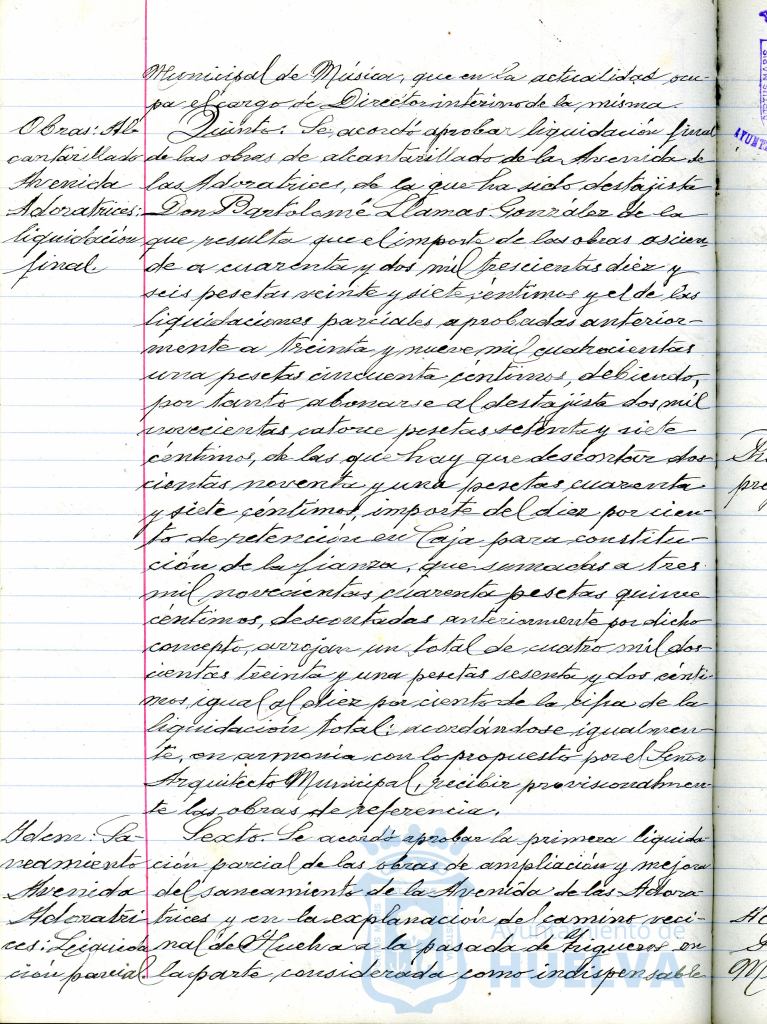 Municipal de Música, que en la actualidad ocu-
pa el cargo de Director interino de la misma.
Obras: Al-
cantarillado
Avenida
Adoratrices:
liquidación
final.
Quinto. Se acordó aprobar liquidación final
de las obras de alcantarillado de la Avenida de
las Adoratrices, de la que ha sido destajista
Don Bartolomé Llamas González de la
que resulta que el importe de las obras ascien-
de a cuarenta y dos mil trescientas diez y
seis pesetas veinte y siete céntimos y el de las
liquidaciones parciales aprobadas anterior-
mente a treinta y nueve mil cuatrocientas
una pesetas cincuenta céntimos, debiendo,
por tanto abonarse al destajista dos mil
novecientas catorce pesetas setenta y siete
céntimos, de las que hay que descontar dos-
cientas noventa y una pesetas cuarenta
y siete céntimos, importe del diez por cien-
to de retención en Caja para constitu-
ción de la fianza, que sumadas a tres
mil novecientas cuarenta pesetas quince
céntimos, descontadas anteriormente por dicho
concepto, arrojan un total de cuatro mil dos-
cientas treinta y una pesetas sesenta y dos cénti-
mos igual al diez por ciento de la cifra de la
liquidación total: acordándose igualmen-
te, en armonía con lo propuesto por el Señor
Arquitecto Municipal, recibir provisionalmen-
te las obras de referencia.
Idem: Sa-
neamiento
Avenida
Adoratri-
ces: Liquida
ción parcial.
Sexto. Se acordó aprobar la primera liquida-
ción parcial de las obras de ampliación y mejora
del saneamiento de la Avenida de las Adora-
trices y en la explanación del camino veci-
nal de Huelva a la pasada de Trigueros en
la parte considerada como indispensable
Ayuntamiento de
HUELVA